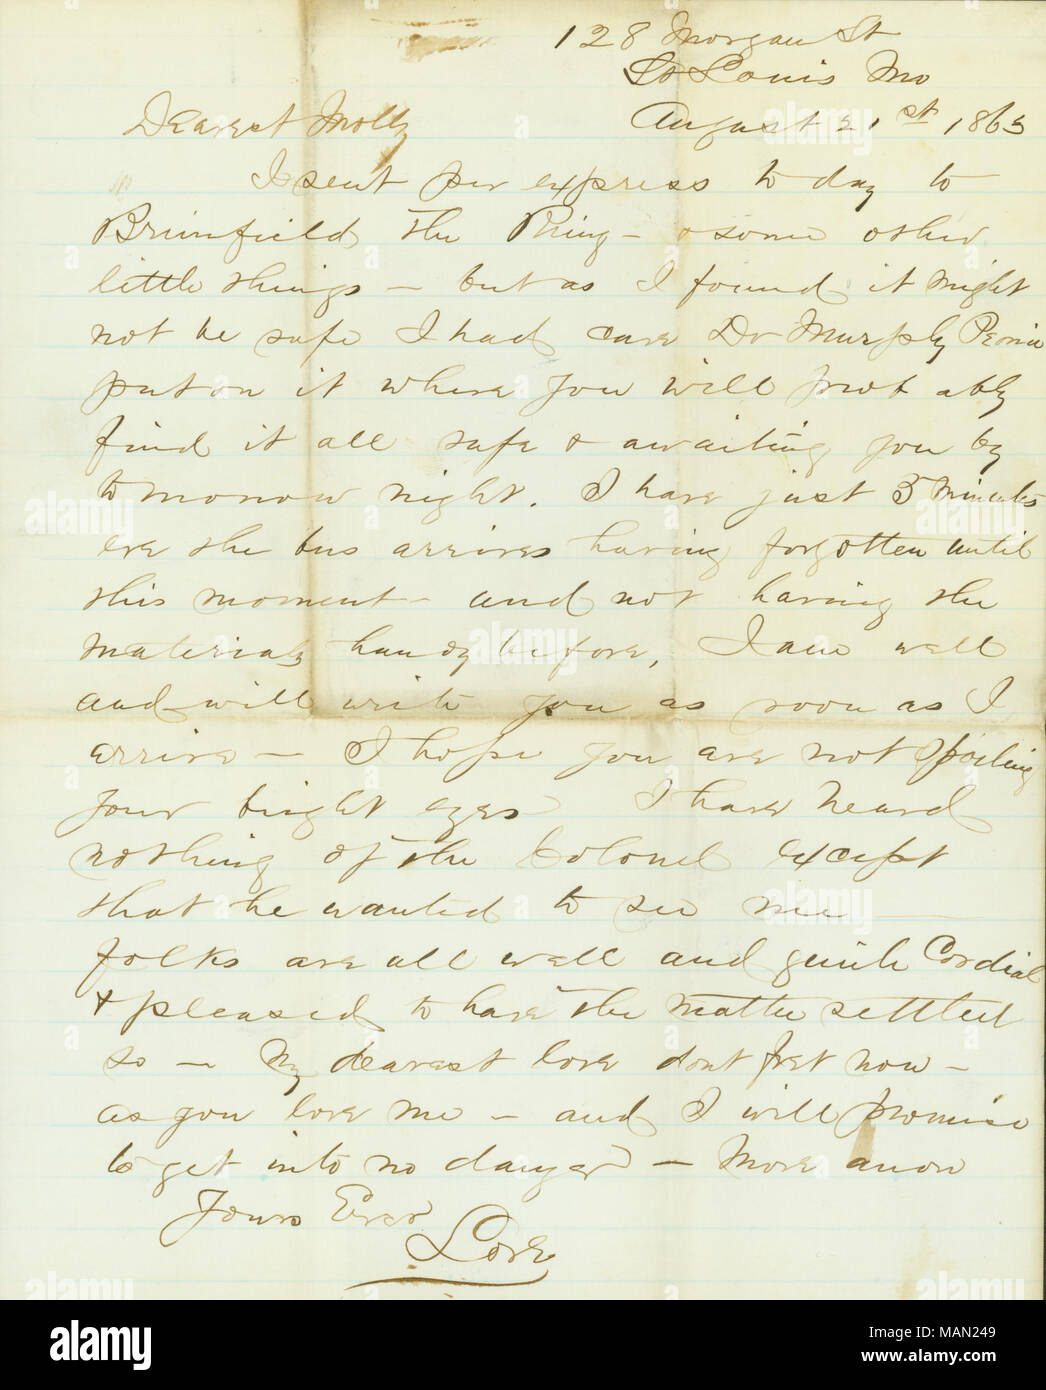 128 Morgan St
St Louis Mo
August 21st 1863
Dearest Molly
I sent per express to day to
Brimfield the Ring - & some other
little things - but as I found it might
not be safe I had care Dr Murphy Peoria
put on it where you will prob ably
find it all safe & awaiting you by
tomorrow night. I have just 5 minutes
ere the bus arrives having forgotten until
this moment - and not having the
materials handy before, I am well
and will write you as soon as I
arrive - I hope you are not spoiling
your bright eyes I have heard
nothing of the Colonel except
that he wanted to see me -
folks are all well and quite Cordial
& pleased to have the matter settled
so - My dearest love dont fret now -
as you love me - and I will promise
to get into no danger - More anon
Yours Ever
Love
alamy
Image ID: MAN249
www.alamy.com